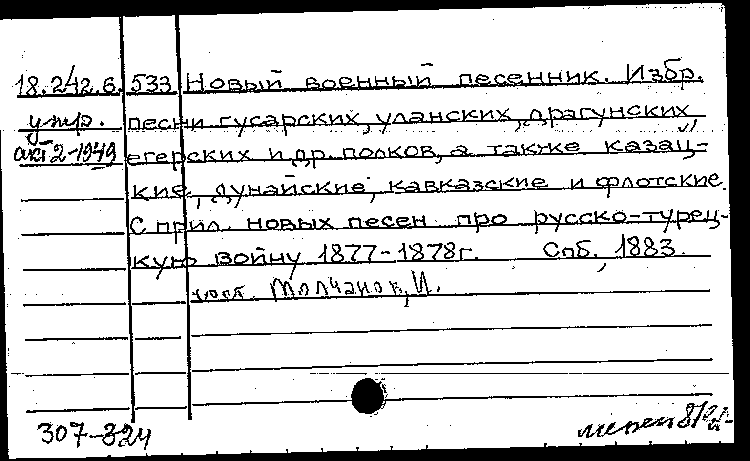 18.242.6. 533 Новый военный песенник. Избр.
утр. песни гусарских, уланских, драгунских,
акт 2-1949 егерских и др. полков, а также казац-
кие, дунайские, кавказские и флотские.
С прил. новых песен про русско-турец-
кую войну 1877-1878г. Спб., 1883.
сост. Молчанов, И.
307-324